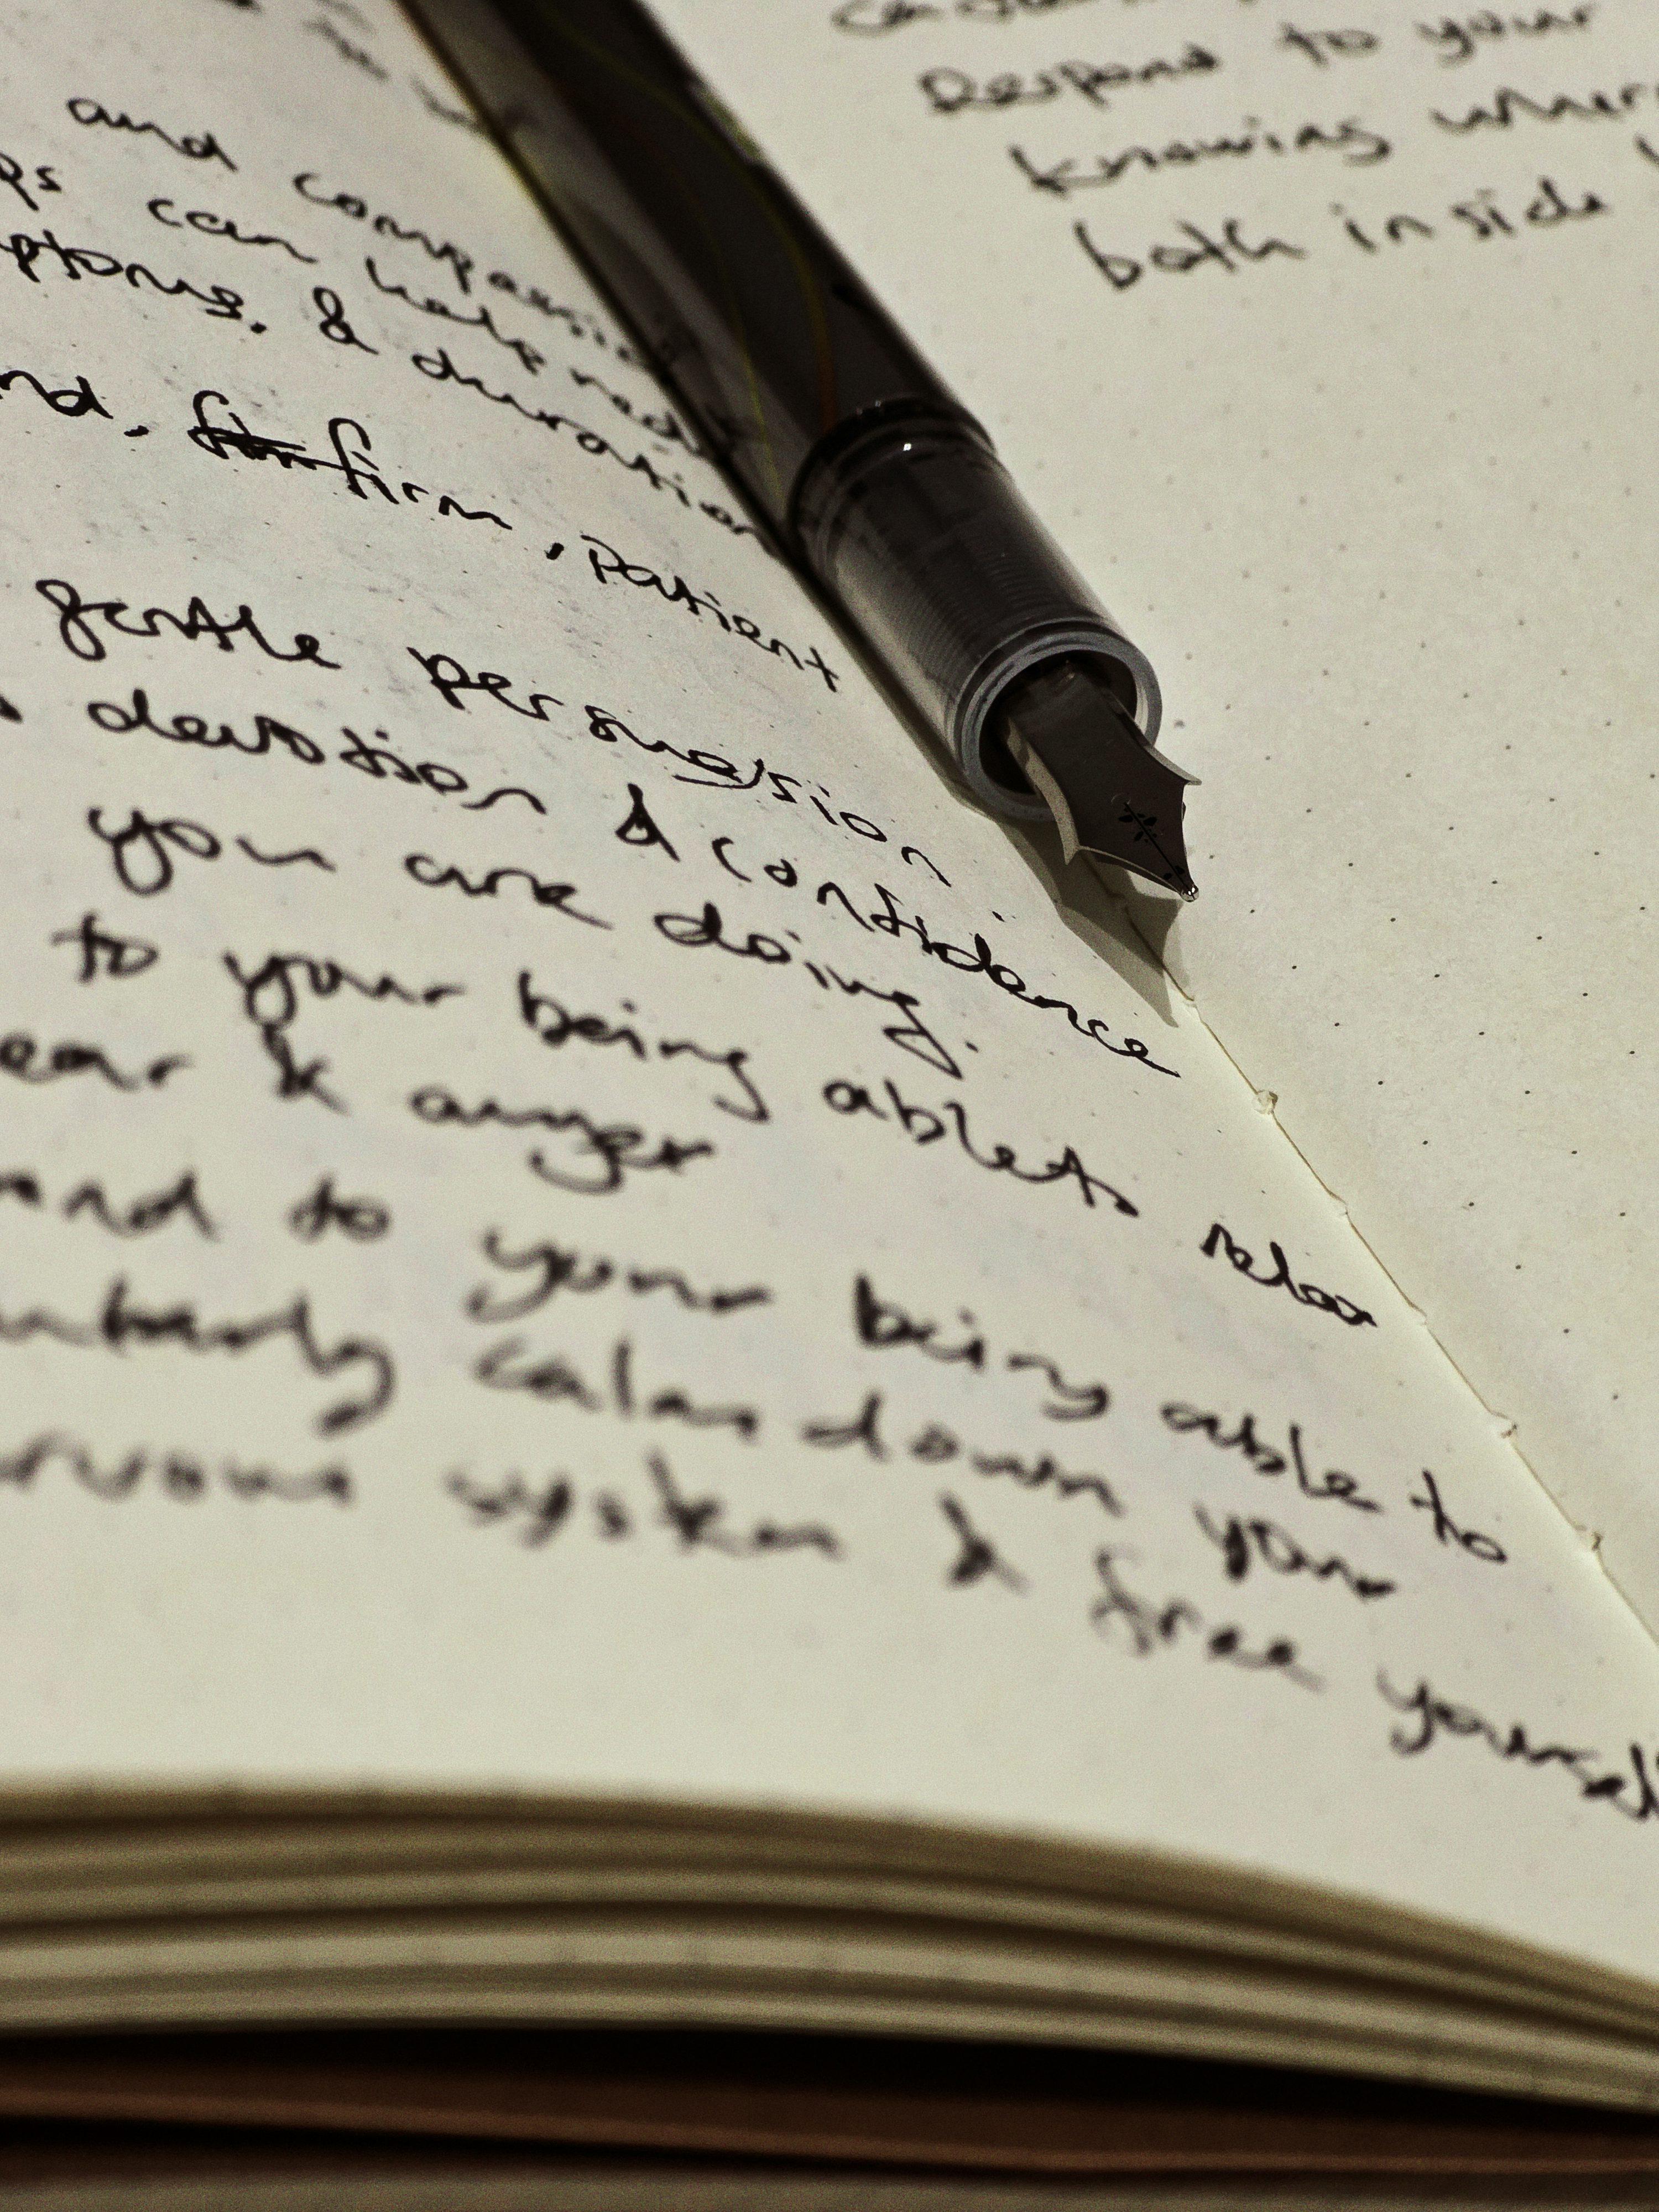 and compassion
ps can help redu
ptoms. & duration
nd, firm, patient
gentle persuasion
devotion & confidence
you are doing.
to your being able to relax
ear & anger
and to your being able to
calm down your
rvous system & free yourself
Respond to your
knowing wher
both inside